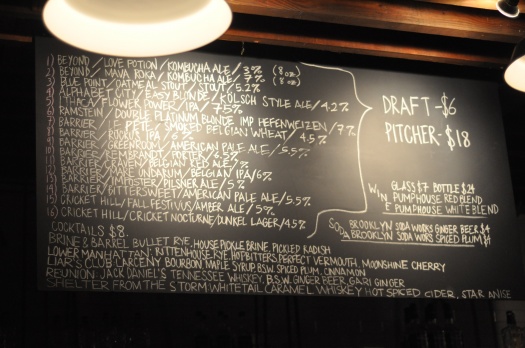 1) BEYOND / LOVE POTION / KOMBUCHA ALE / 3% (8oz)
2) BEYOND / MAVA ROKA / KOMBUCHA ALE / 7% (8oz)
3) BLUE POINT / OATMEAL STOUT / STOUT / 5.2%
4) ALPHABET CITY / EASY BLONDE / KÖLSCH STYLE ALE / 4.2%
5) ITHACA / FLOWER POWER / IPA / 7.5%
6) RAMSTEIN / DOUBLE PLATINUM BLONDE IMP HEFENWEIZEN / 7%
7) BARRIER / PETE'S SMOKED BELGIAN WHEAT / 4.5%
BARRIER /
BARRIER / GREENROOM / AMERICAN PALE ALE / 5.5%
BARRIER / REMBRANDT / PORTER / 6.5%
BARRIER / BELGIAN RED ALE / 7%
BARRIER / BELGIAN IPA / 6%
BARRIER / PILSNER ALE / 5%
14) BARRIER / BITTERSWEET / AMERICAN PALE ALE / 5.5%
15) CRICKET HILL / FALL FESTIVUS / AMBER ALE / 5%
16) CRICKET HILL / CRICKET NOCTURNE / DUNKEL LAGER / 4.5%
DRAFT - $6
PITCHER - $18
GLASS $7 BOTTLE $24
WIN PUMPHOUSE RED BLEND
E PUMPHOUSE WHITE BLEND
SODA BROOKLYN SODA WORKS GINGER BEER $4
BROOKLYN SODA WORKS SPICED PLUM $4
COCKTAILS $8
BRINE & BARREL BULLET RYE, HOUSE PICKLE BRINE, PICKLED RADISH
LOWER MANHATTAN, RITTENHOUSE RYE, HOP BITTERS, PERFECT VERMOUTH, MOONSHINE CHERRY
LIAR'S CLUB LARCENY BOURBON, MAPLE SYRUP, B.S.W. SPICED PLUM, CINNAMON
REUNION: JACK DANIEL'S TENNESSEE WHISKEY, B.S.W. GINGER BEER, GARI GINGER
SHELTER FROM THE STORM WHITETAIL CARAMEL WHISKEY, HOT SPICED CIDER, STAR ANISE